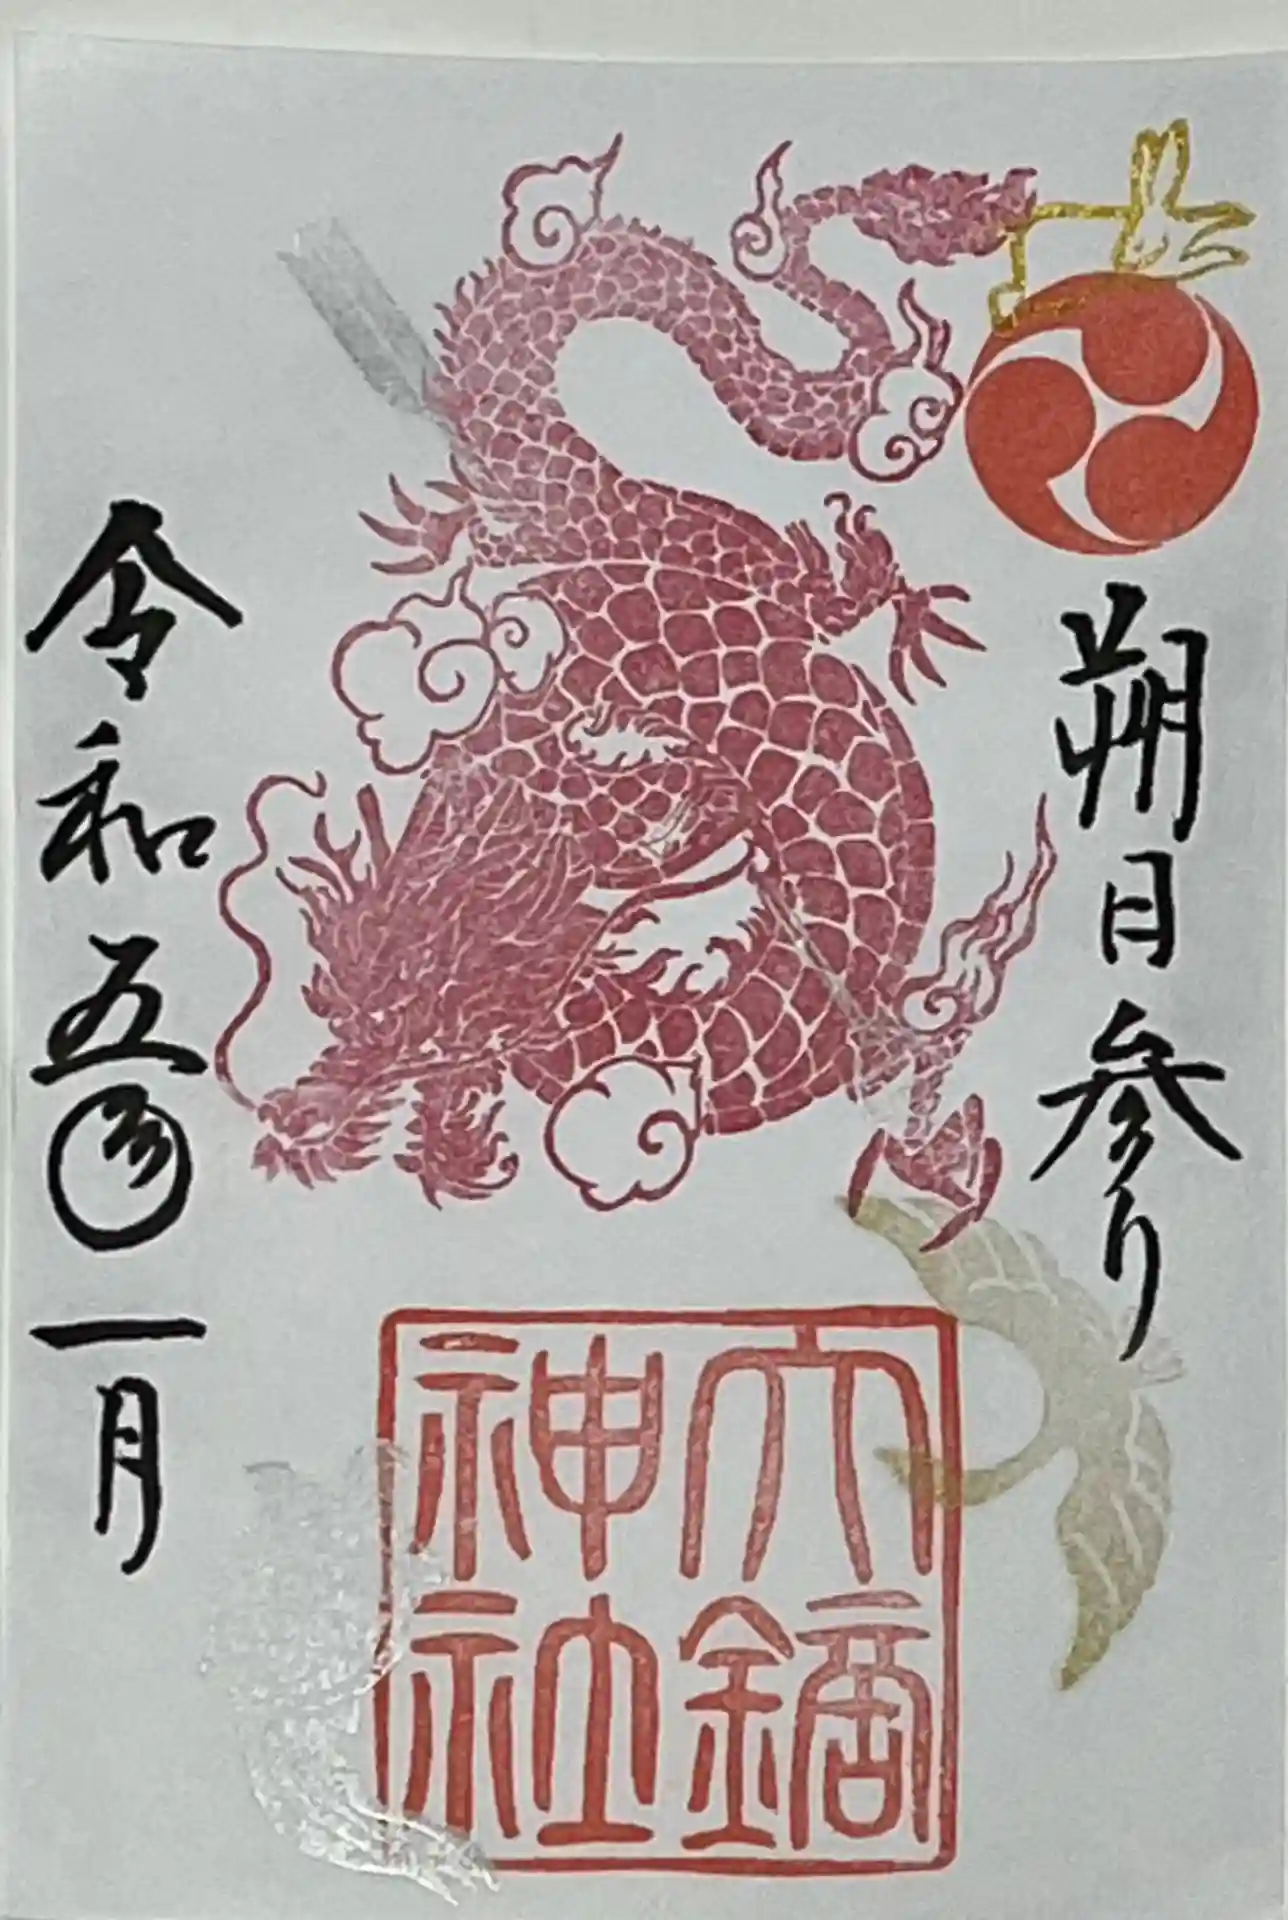 朔日参り
六鏑
神社
令和五年一月